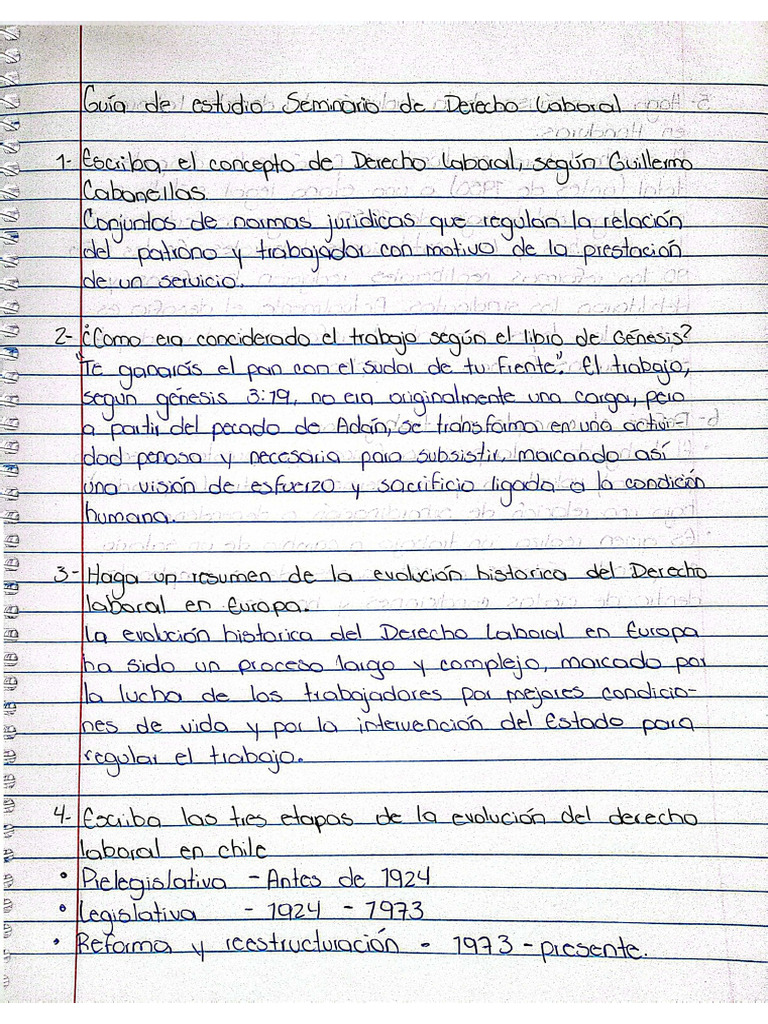 Guía de estudio Seminario de Derecho Laboral
1- Escriba el concepto de Derecho Laboral, según Guillermo
Cabanellas.
Conjuntos de normas jurídicas que regulan la relación
del patrono y trabajador con motivo de la prestación
de un servicio.
2- ¿Como era conciderado el trabajo según el libro de Génesis?
"Te ganarás el pan con el sudor de tu frente". El trabajo,
según génesis 3:19, no era originalmente una carga, pero
a partir del pecado de Adán, se transforma en una activi-
dad penosa y necesaria para subsistir, marcando así
una visión de esfuerzo y sacrificio ligada a la condición
humana.
3- Haga un resumen de la evolución historica del Derecho
laboral en Europa.
La evolución historica del Derecho Laboral en Europa
ha sido un proceso largo y complejo, marcado por
la lucha de los trabajadores por mejores condicio-
nes de vida y por la intervención del Estado para
regular el trabajo.
4- Escriba las tres etapas de la evolución del derecho
laboral en chile
• Prelegislativa - Antes de 1924
• Legislativa - 1924 - 1973
• Reforma y reestructuración - 1973 - presente.